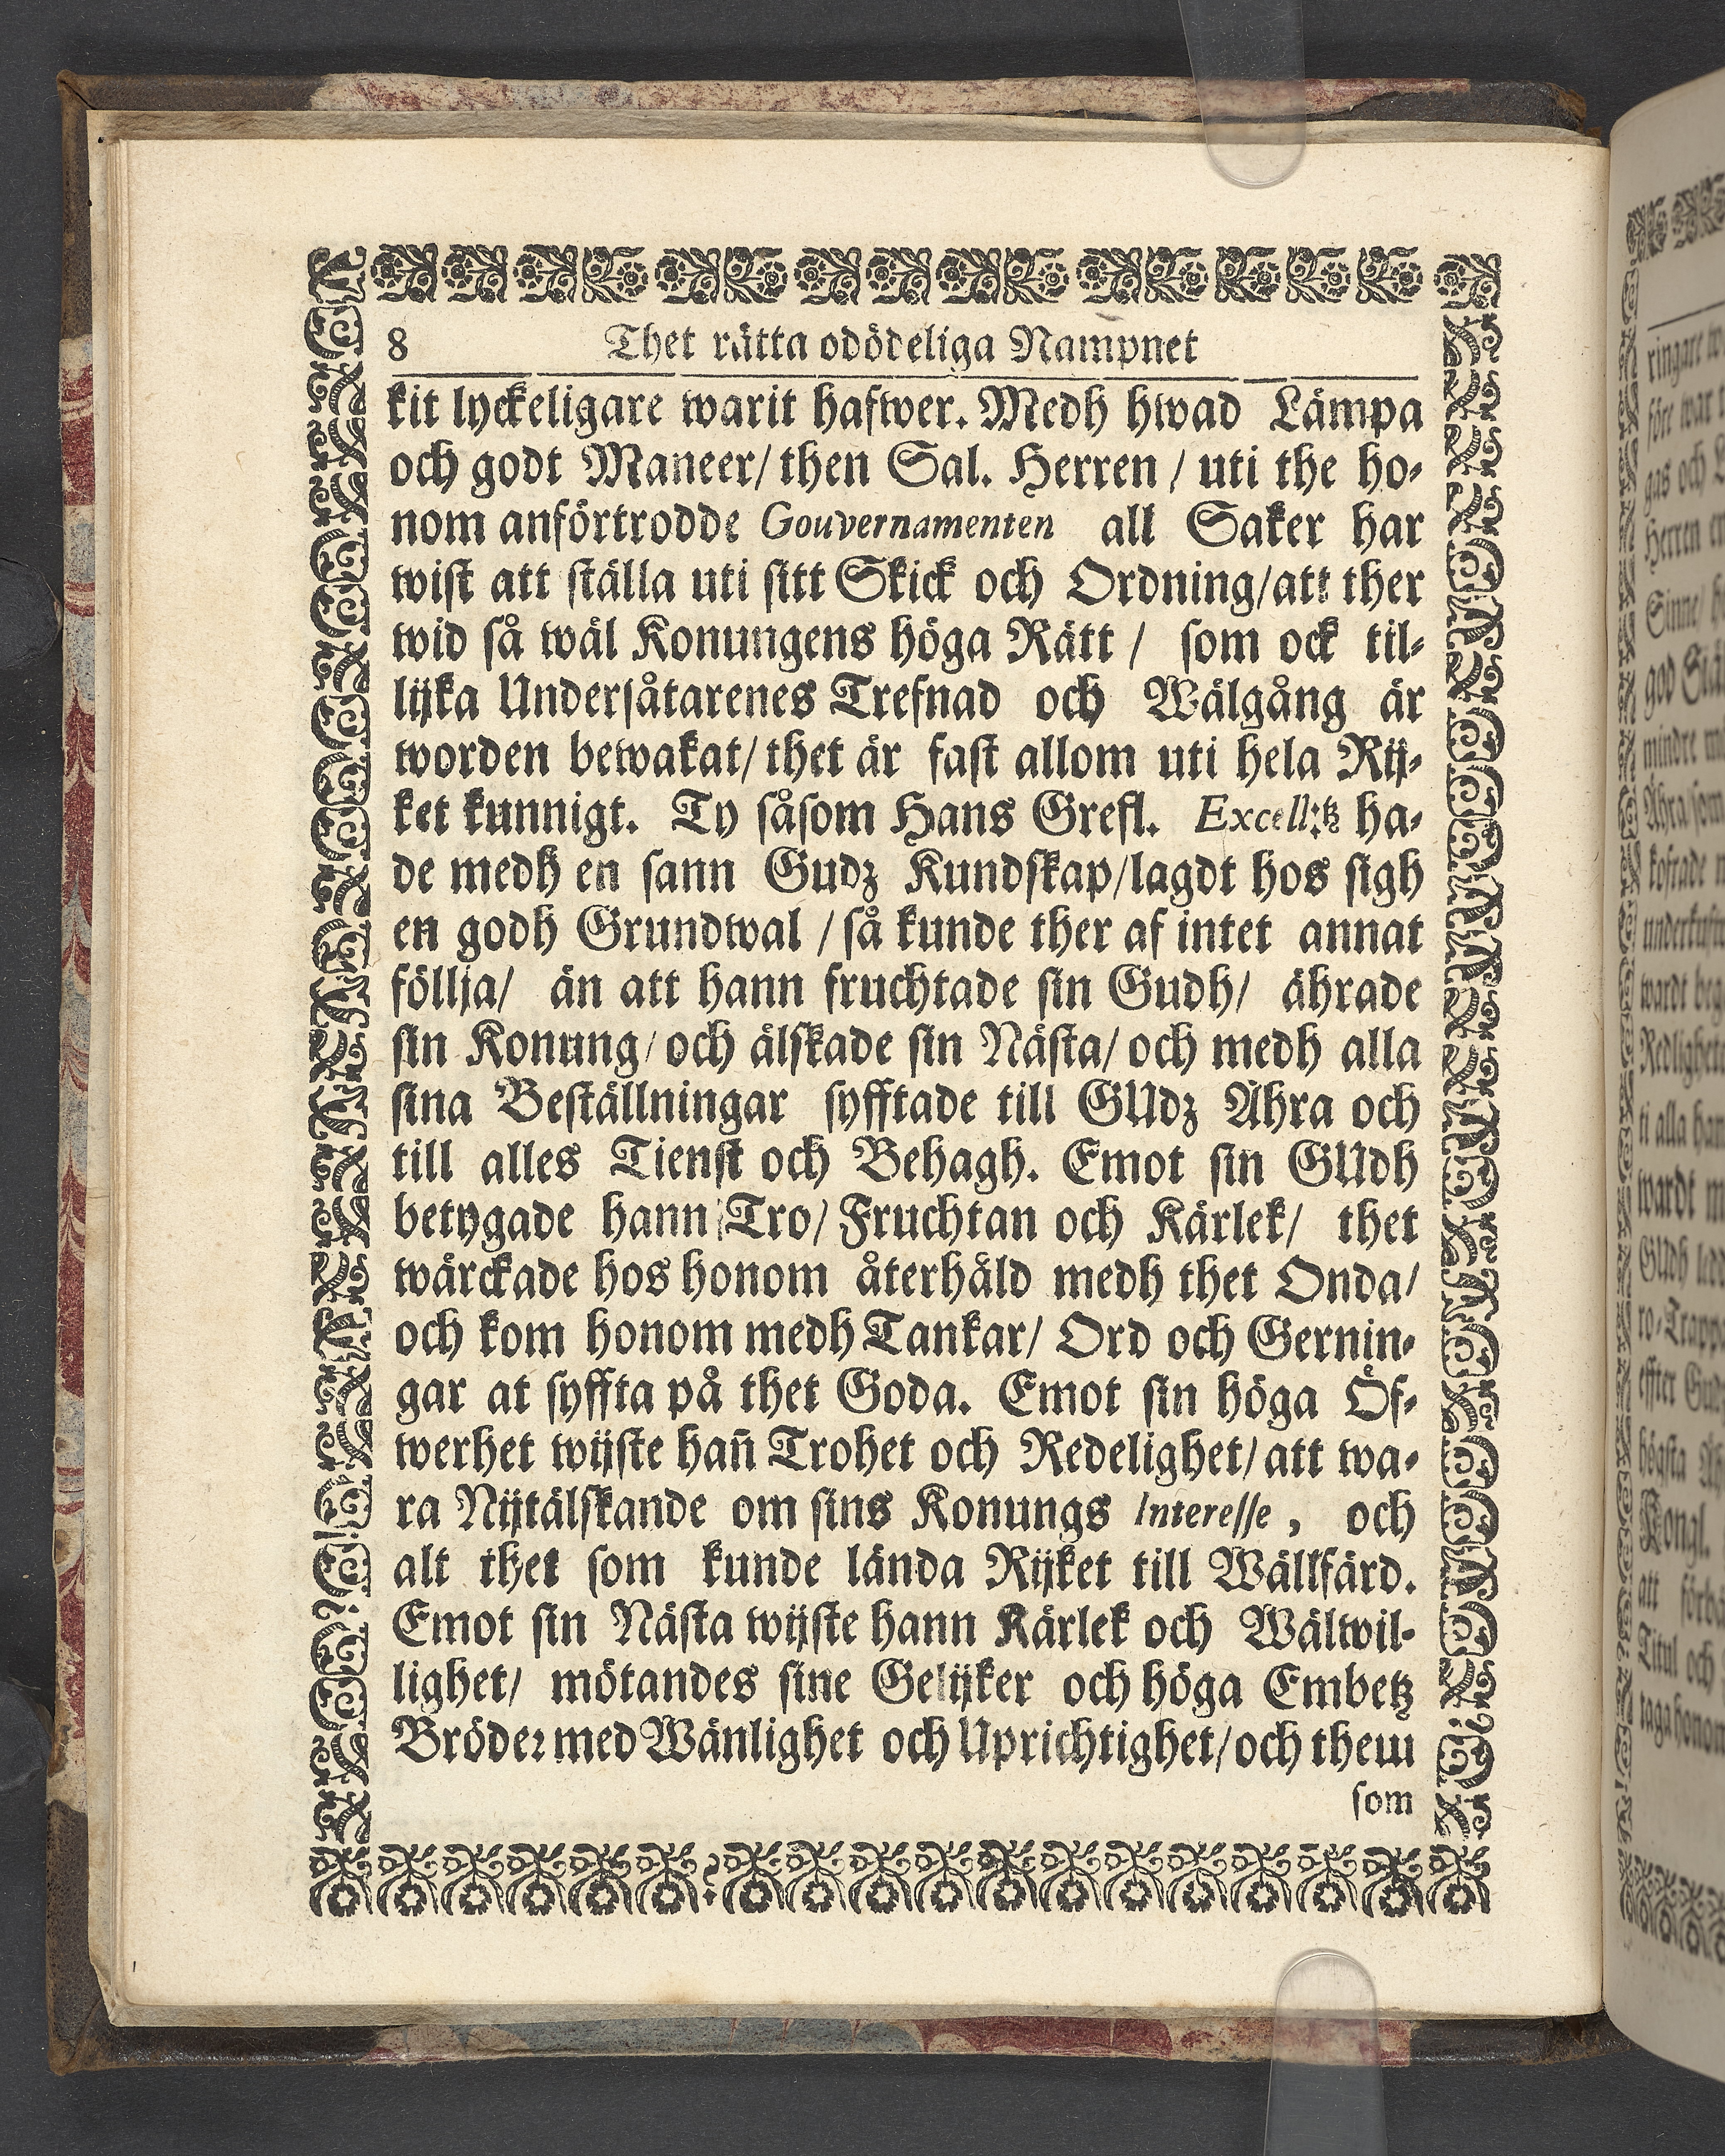 8 Thet rätta odödeliga Nampnet
kit lyckeligare warit hafwer. Medh hwad Lämpa
och godt Maneer/ then Sal. Herren / uti the ho-
nom anförtrodde Gouvernamenten all Saker har
wist att ställa uti sitt Skick och Ordning/att ther
wid så wäl Konungens höga Rätt / som ock til-
lijka Undersåtarenes Trefnad och Wälgång är
worden bewakat/ thet är fast allom uti hela Rij-
ket kunnigt. Ty såsom Hans Grefl. Excell:tz ha-
de medh en sann Gudz Kundskap/lagdt hos sigh
en godh Grundwal / så kunde ther af intet annat
föllja/ än att hann fruchtade sin Gudh/ ährade
sin Konung/ och älskade sin Nästa/ och medh alla
sina Beställningar syfftade till GUdz Ähra och
till alles Tienst och Behagh. Emot sin GUdh
betygade hann Tro/ Fruchtan och Kärlek/ thet
wärckade hos honom återhåld medh thet Onda/
och kom honom medh Tankar/ Ord och Gernin-
gar at syffta på thet Goda. Emot sin höga Öf-
werhet wijste han̄ Trohet och Redelighet/ att wa-
ra Nijtälskande om sins Konungs Interesse, och
alt thet som kunde lända Rijket till Wällfärd.
Emot sin Nästa wijste hann Kärlek och Wälwil-
lighet/ mötandes sine Gelijker och höga Embetz
Bröder med Wänlighet och Uprichtighet/ och them
som
ringare
före war
gas och
Herren
Sinne/
god
mindre
Ähra som
kostade
wardt
ti alla
wardt
GUdh
effter
högsta
Kongl.
att
Titul och
taga honom